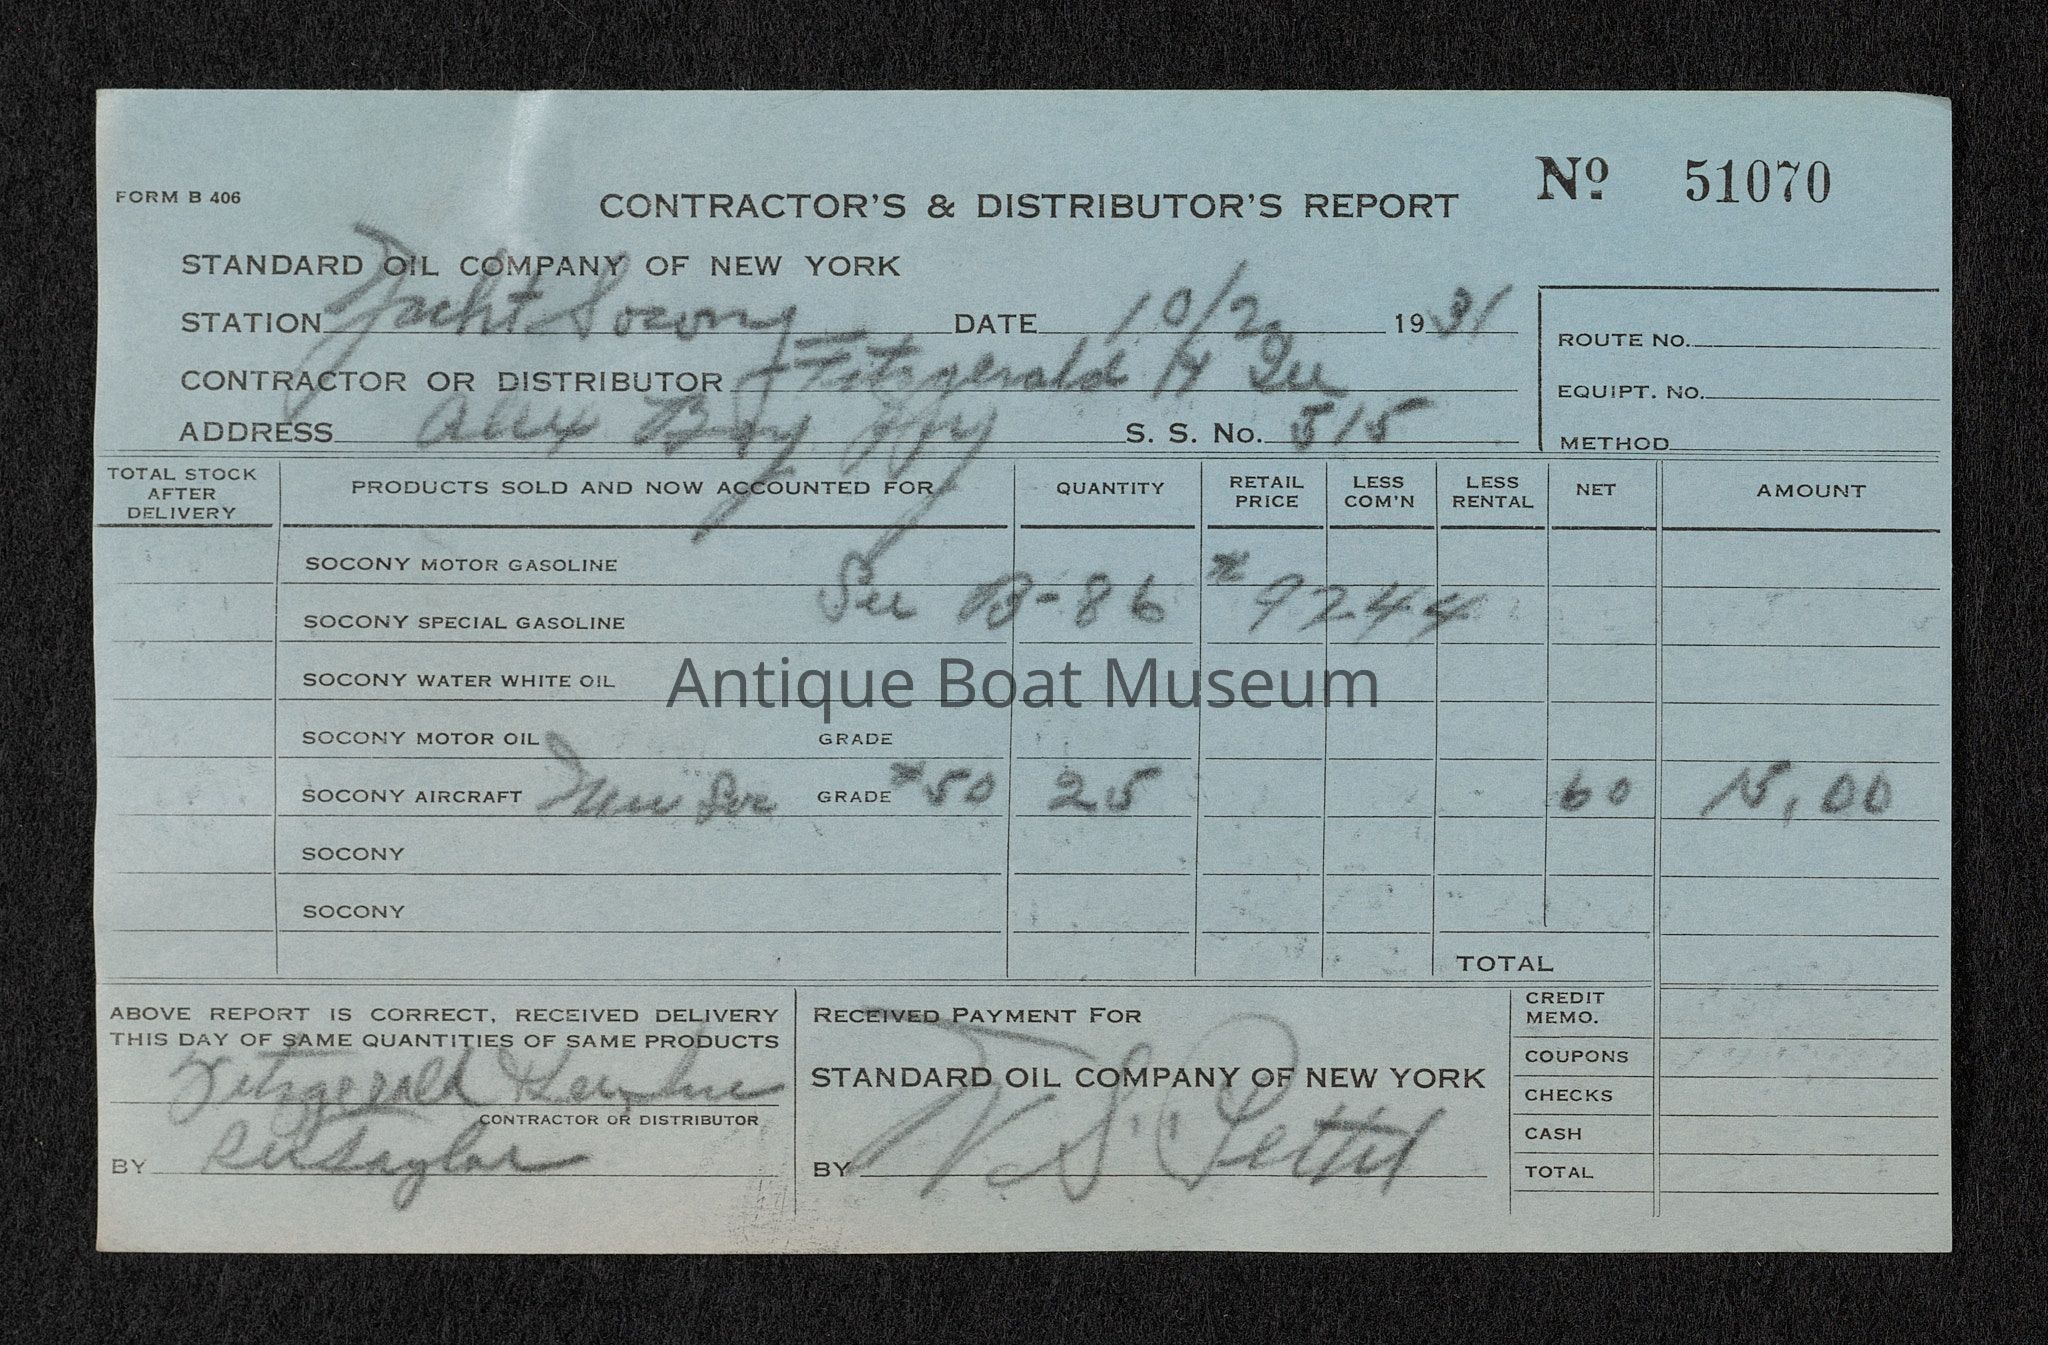 FORM B 406
CONTRACTOR'S & DISTRIBUTOR'S REPORT
Nº 51070
STANDARD OIL COMPANY OF NEW YORK
STATION Yacht Socony DATE 10/2 1931
CONTRACTOR OR DISTRIBUTOR Fitzgerald
ADDRESS Alex Bay N Y S. S. No. 515
ROUTE NO.
EQUIPT. NO.
METHOD
TOTAL STOCK AFTER DELIVERY PRODUCTS SOLD AND NOW ACCOUNTED FOR QUANTITY RETAIL PRICE LESS COM'N LESS RENTAL NET AMOUNT
SOCONY MOTOR GASOLINE
See B-86 # 9244
SOCONY SPECIAL GASOLINE
SOCONY WATER WHITE OIL
Antique Boat Museum
SOCONY MOTOR OIL GRADE
SOCONY AIRCRAFT GRADE #50 25 60 15,00
SOCONY
SOCONY
TOTAL
ABOVE REPORT IS CORRECT, RECEIVED DELIVERY
THIS DAY OF SAME QUANTITIES OF SAME PRODUCTS
Fitzgerald
CONTRACTOR OR DISTRIBUTOR
BY Taylor
RECEIVED PAYMENT FOR
STANDARD OIL COMPANY OF NEW YORK
BY W. S. Pettit
CREDIT MEMO.
COUPONS
CHECKS
CASH
TOTAL